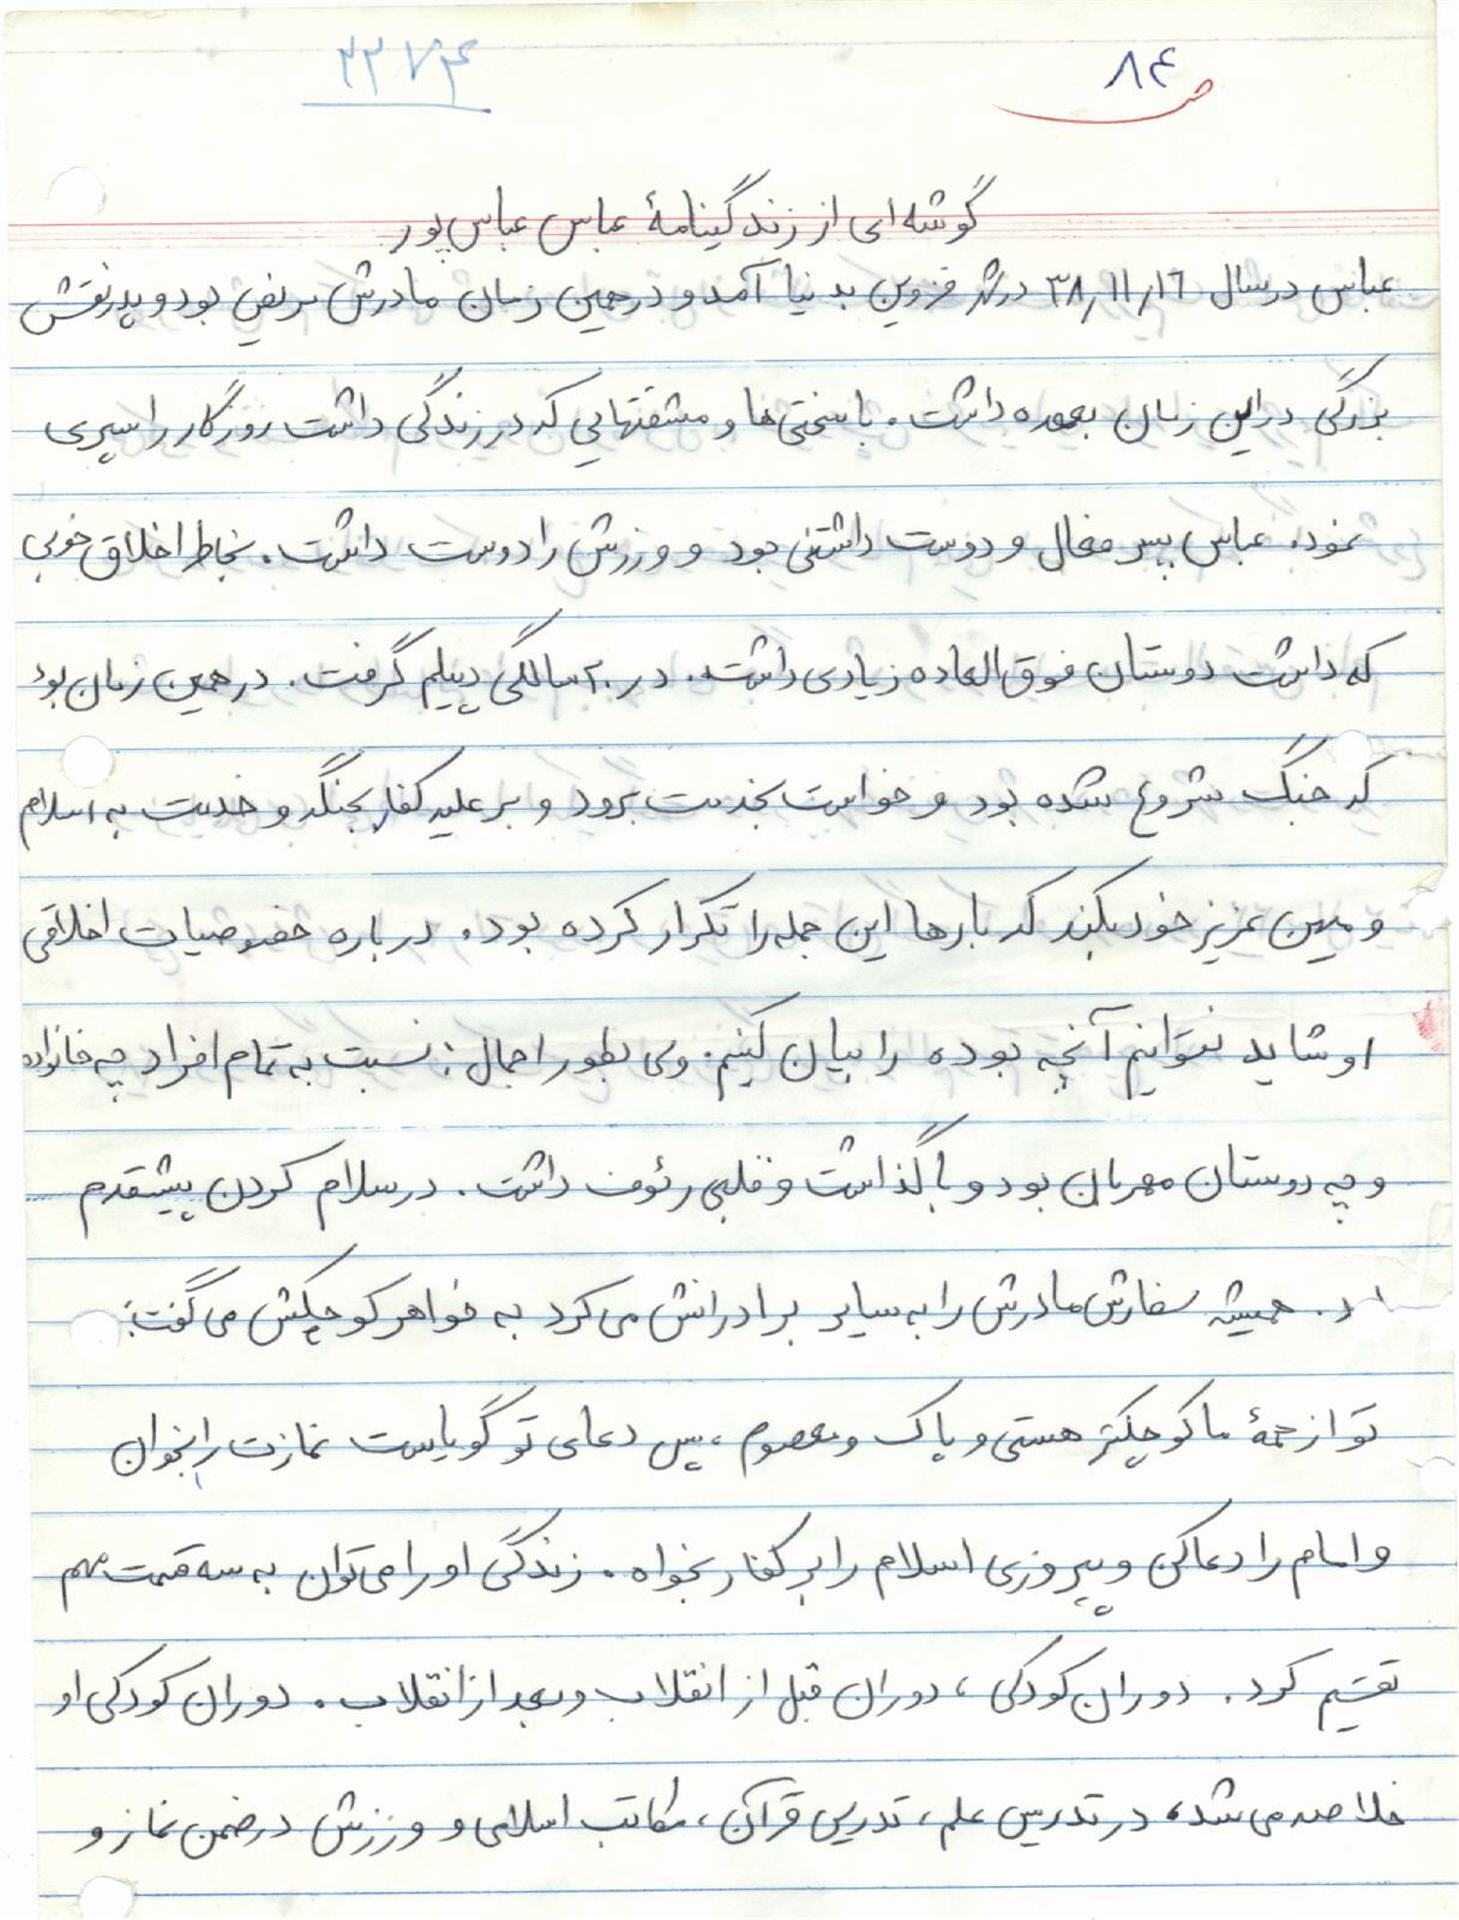 ۲۲۷۴
۸۴
گوشه‌ای از زندگینامهٔ عباس عباس‌پور
عباس در سال ۳۸/۱۱/۱۶ در شهر قزوین بدنیا آمد و در همین زمان مادرش مریض بود و پدر نقش
بزرگی در این زمان بعهده داشت. با سختی‌ها و مشقتهایی که در زندگی داشت روزگار را سپری
نمود. عباس پسر فعال و دوست داشتنی بود و ورزش را دوست داشت. بخاطر اخلاق خوبی
که داشت دوستان فوق‌العاده زیادی داشت. در ۲۰ سالگی دیپلم گرفت. در همین زمان بود
که جنگ شروع شده بود و خواست بخدمت برود و بر علیه کفار بجنگد و خدمت به اسلام
و میهن عزیز خود بکند که بارها این جمله را تکرار کرده بود. درباره خصوصیات اخلاقی
او شاید نتوانیم آنچه بوده را بیان کنیم. ولی بطور اجمال: نسبت به تمام افراد چه خانواده
و چه دوستان مهربان بود و با گذاشت و قلبی رئوف داشت. در سلام کردن پیشقدم
د. همیشه سفارش مادرش را به سایر برادرانش می‌کرد به خواهر کوچکش می‌گفت:
تو از همهٔ ما کوچکتر هستی و پاک و معصوم، پس دعای تو گویاست نمازت را بخوان
و امام را دعا کن و پیروزی اسلام را بر کفار بخواه. زندگی او را می‌توان به سه قسمت مهم
تقسیم کرد. دوران کودکی، دوران قبل از انقلاب و بعد از انقلاب. دوران کودکی او
خلاصه می‌شد، در تدریس علم، تدریس قرآن، مکاتب اسلامی و ورزش در ضمن نماز و